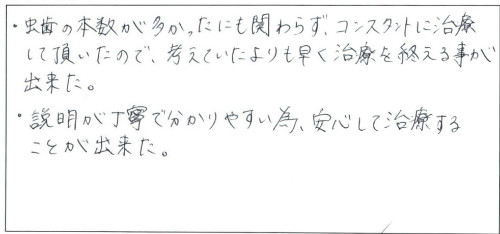 ・虫歯の本数が多かったにも関わらず、コンスタントに治療
して頂いたので、考えていたよりも早く治療を終える事が
出来た。
・説明が丁寧で分かりやすい為、安心して治療する
ことが出来た。